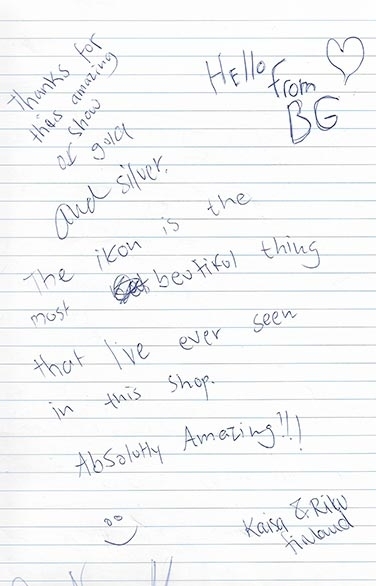 Thanks for
this amazing
show
of gold
and silver.
Hello
from
BG
The ikon is the
most beutiful thing
that I've ever seen
in this shop.
Absolutly Amazing!!!
Kaisa & Riku
Finland